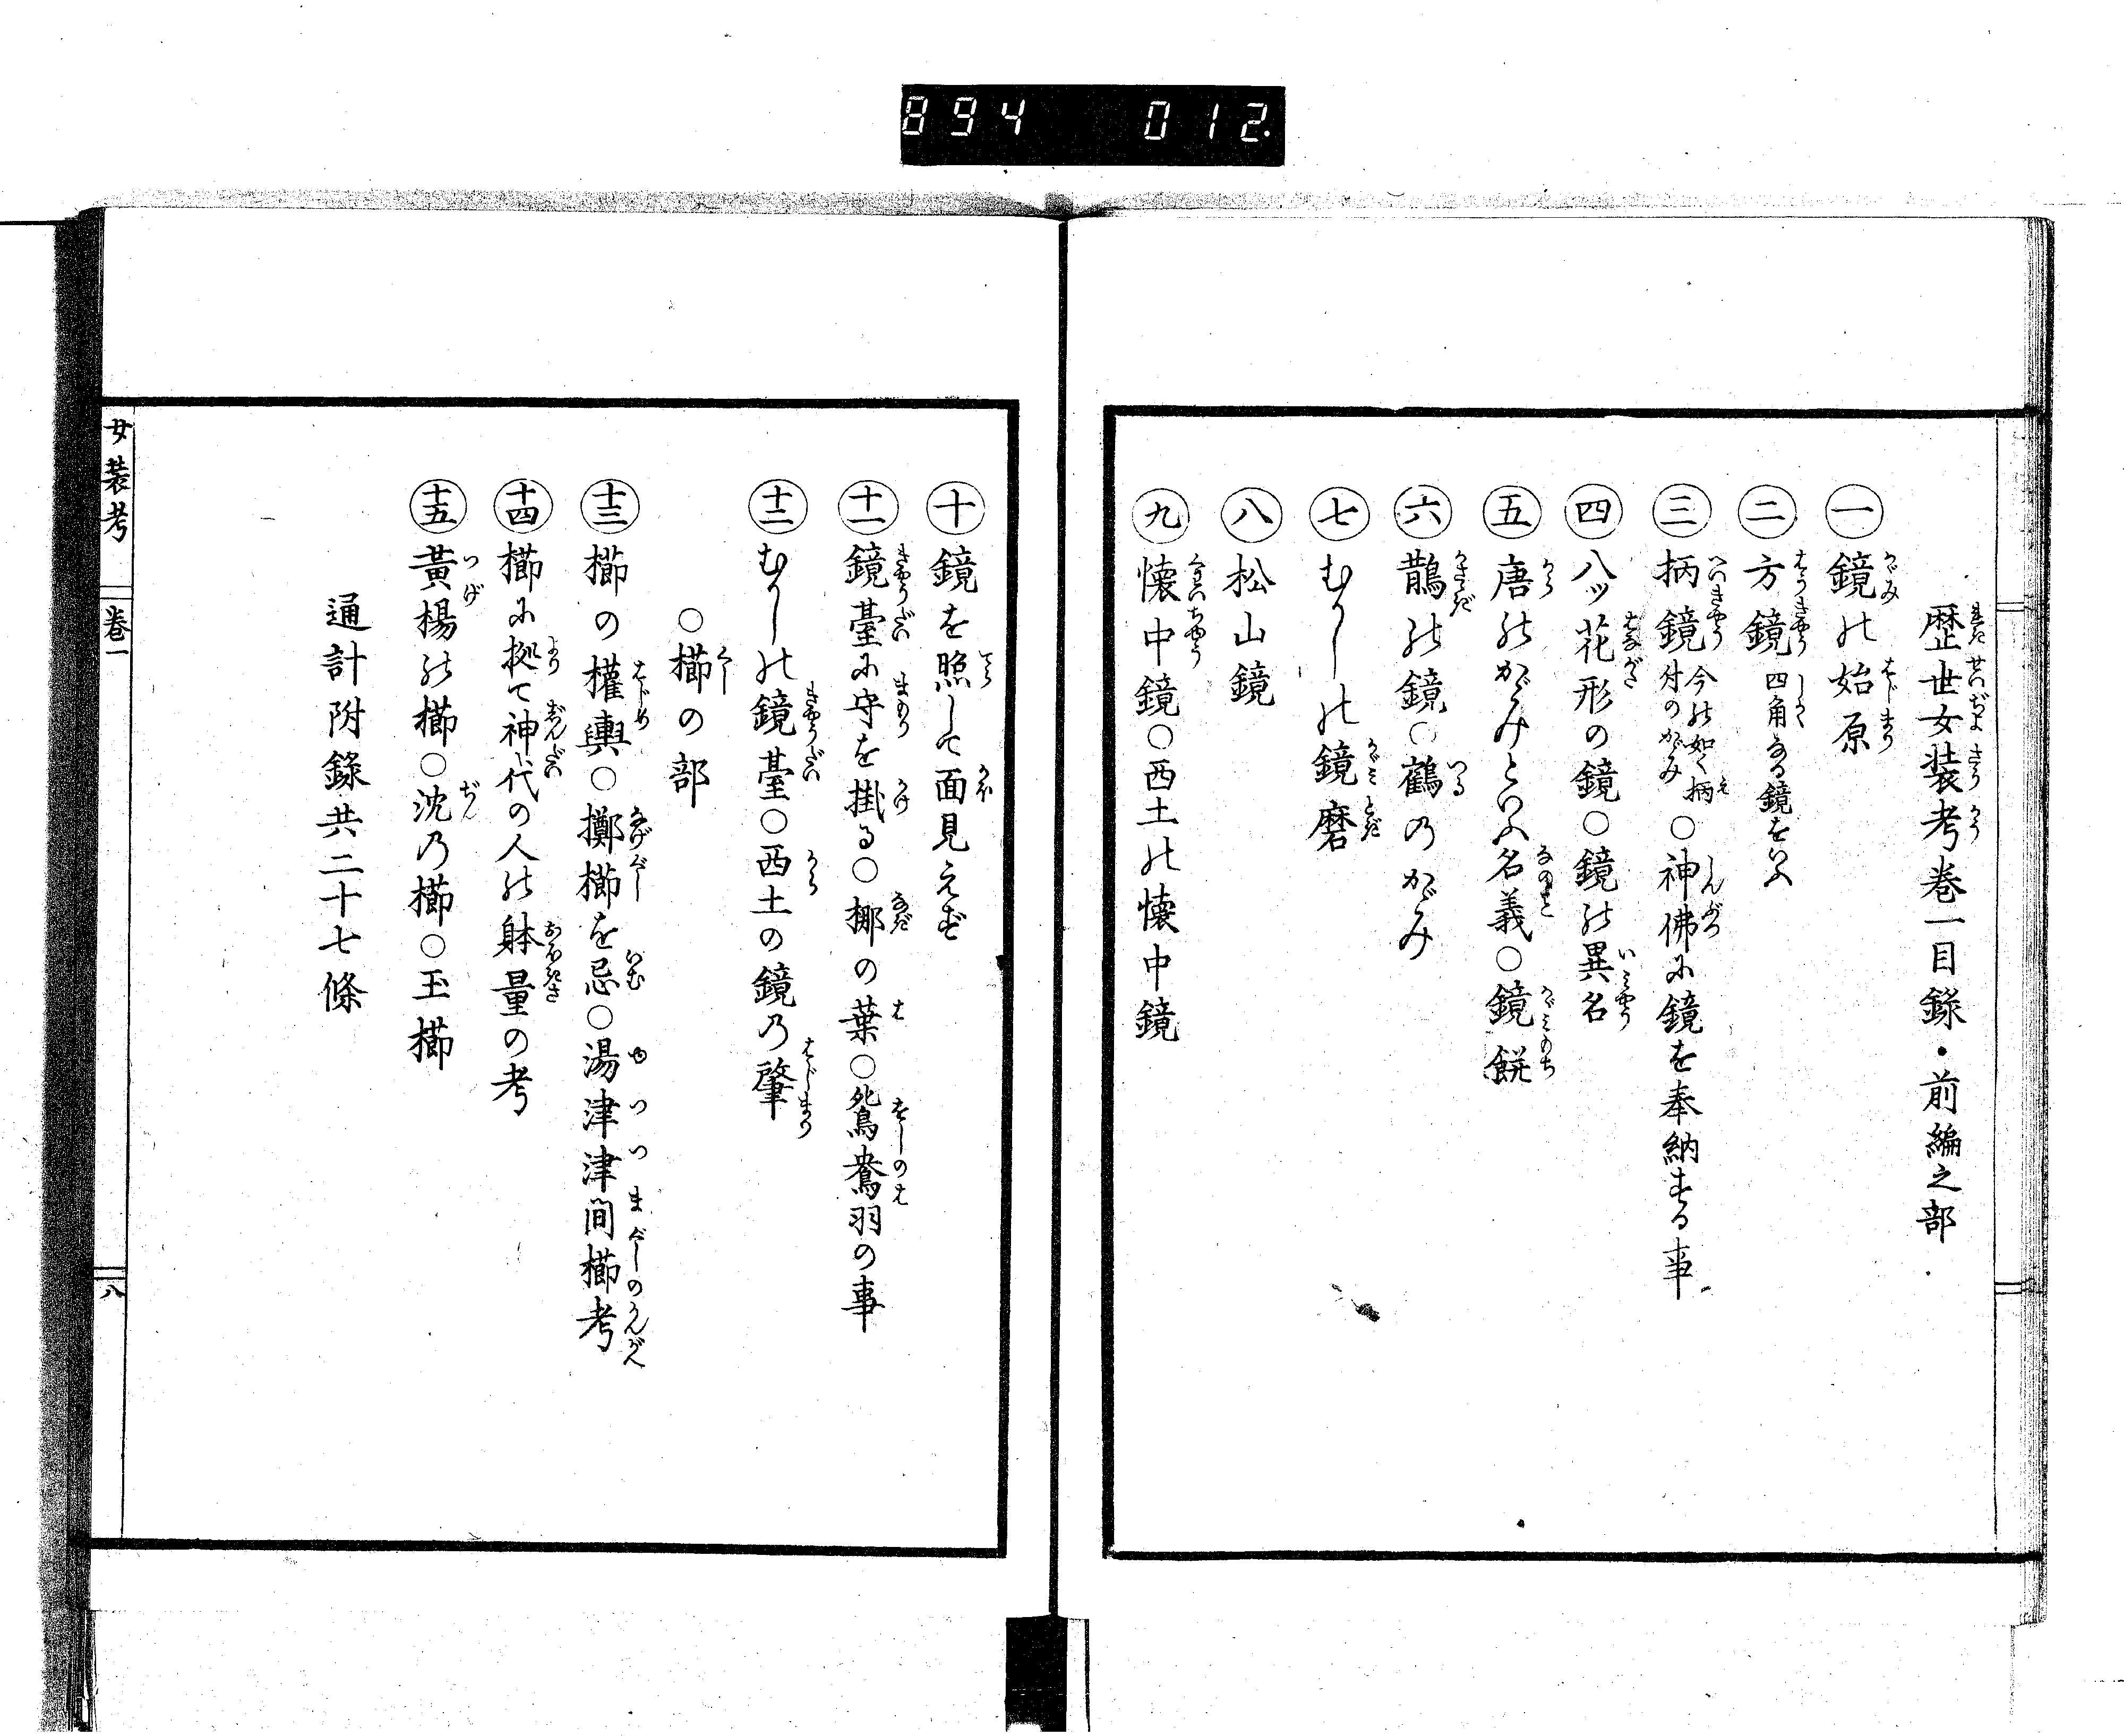 894 012
歴世女装考巻一目錄・前編之部
㊀鏡の始原
㊁方鏡 四角なる鏡をいふ
㊂柄鏡 今の如く柄付のかゞみ ○神佛に鏡を奉納する事
㊃八ッ花形の鏡○鏡の異名
㊄唐のかゞみといふ名義○鏡餅
㊅鵲の鏡○鶴のかゞみ
㊆むかしの鏡磨
㊇松山鏡
㊈懐中鏡○西土の懐中鏡
㊉鏡を照して面見えず
十一 鏡臺に守を掛る○梛の葉○鴛鴦羽の事
十二 むかしの鏡臺○西土の鏡の肇
○櫛の部
十三 櫛の權輿○擲櫛を忌○湯津津間櫛考
十四 櫛に拠て神代の人の躰量の考
十五 黃楊の櫛○沈の櫛○玉櫛
通計附錄共二十七條
女裝考 卷一 八